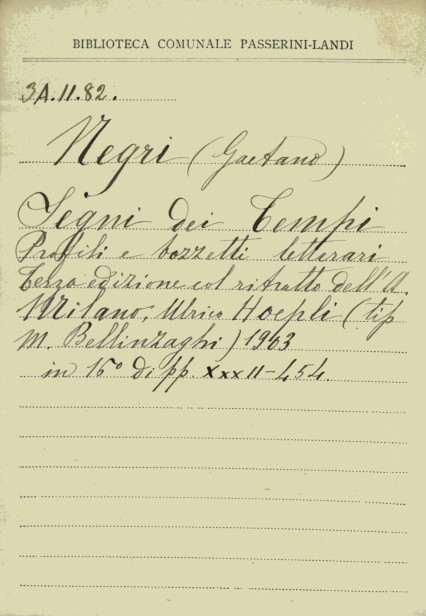 BIBLIOTECA COMUNALE PASSERINI-LANDI
3A.11.82.
Negri (Gaetano)
Segni dei Tempi
Profili e bozzetti letterari
Terza edizione col ritratto dell'A.
Milano, Ulrico Hoepli (tip
M. Bellinzaghi) 1903
in 16° di pp. XXXII-454.